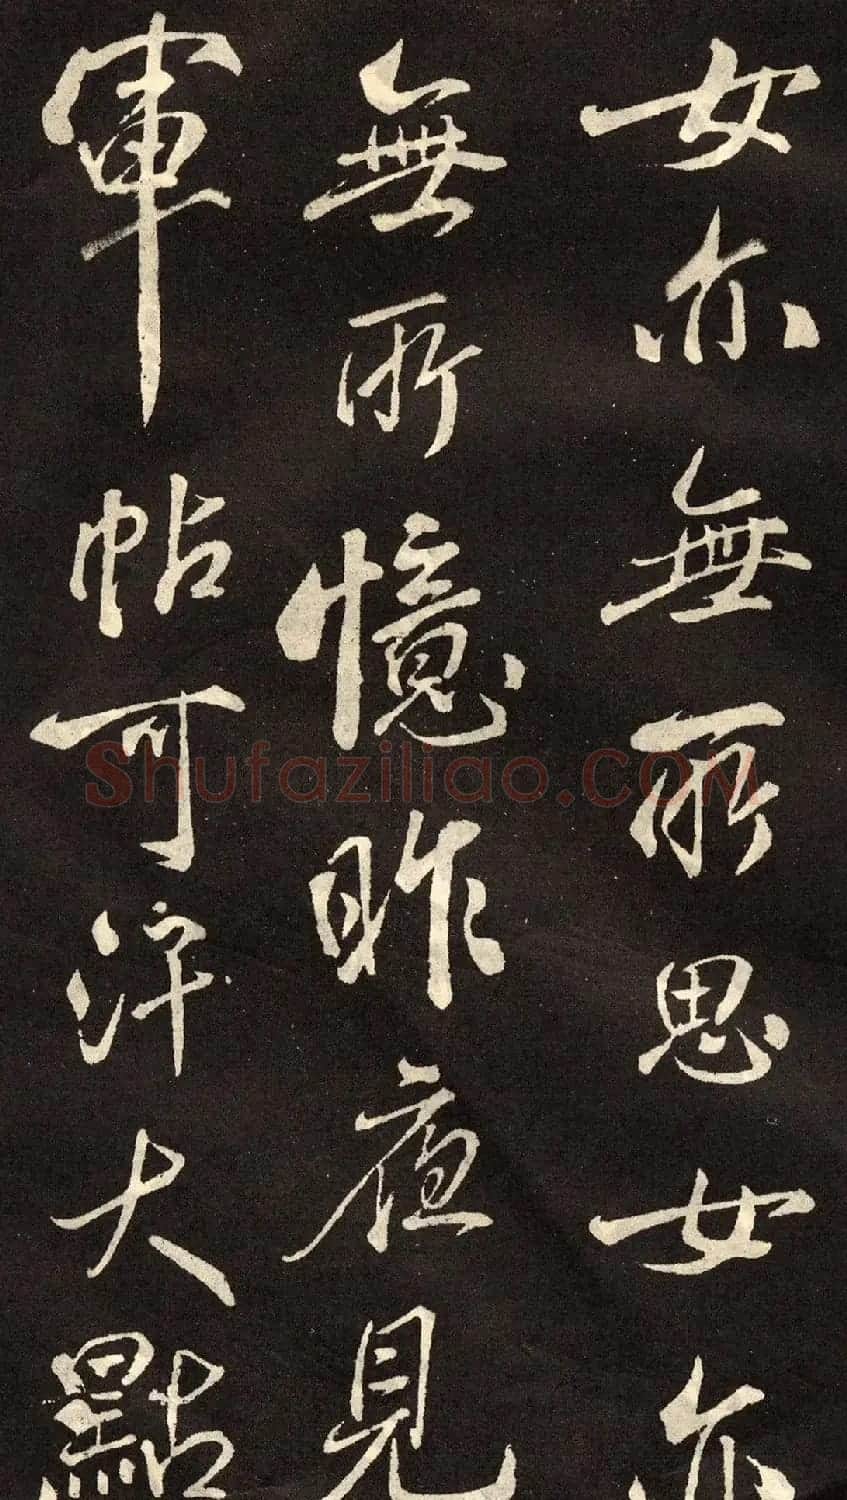 女亦無所思女亦
無所憶昨夜見
軍帖可汗大點
Shufaziliao.COM